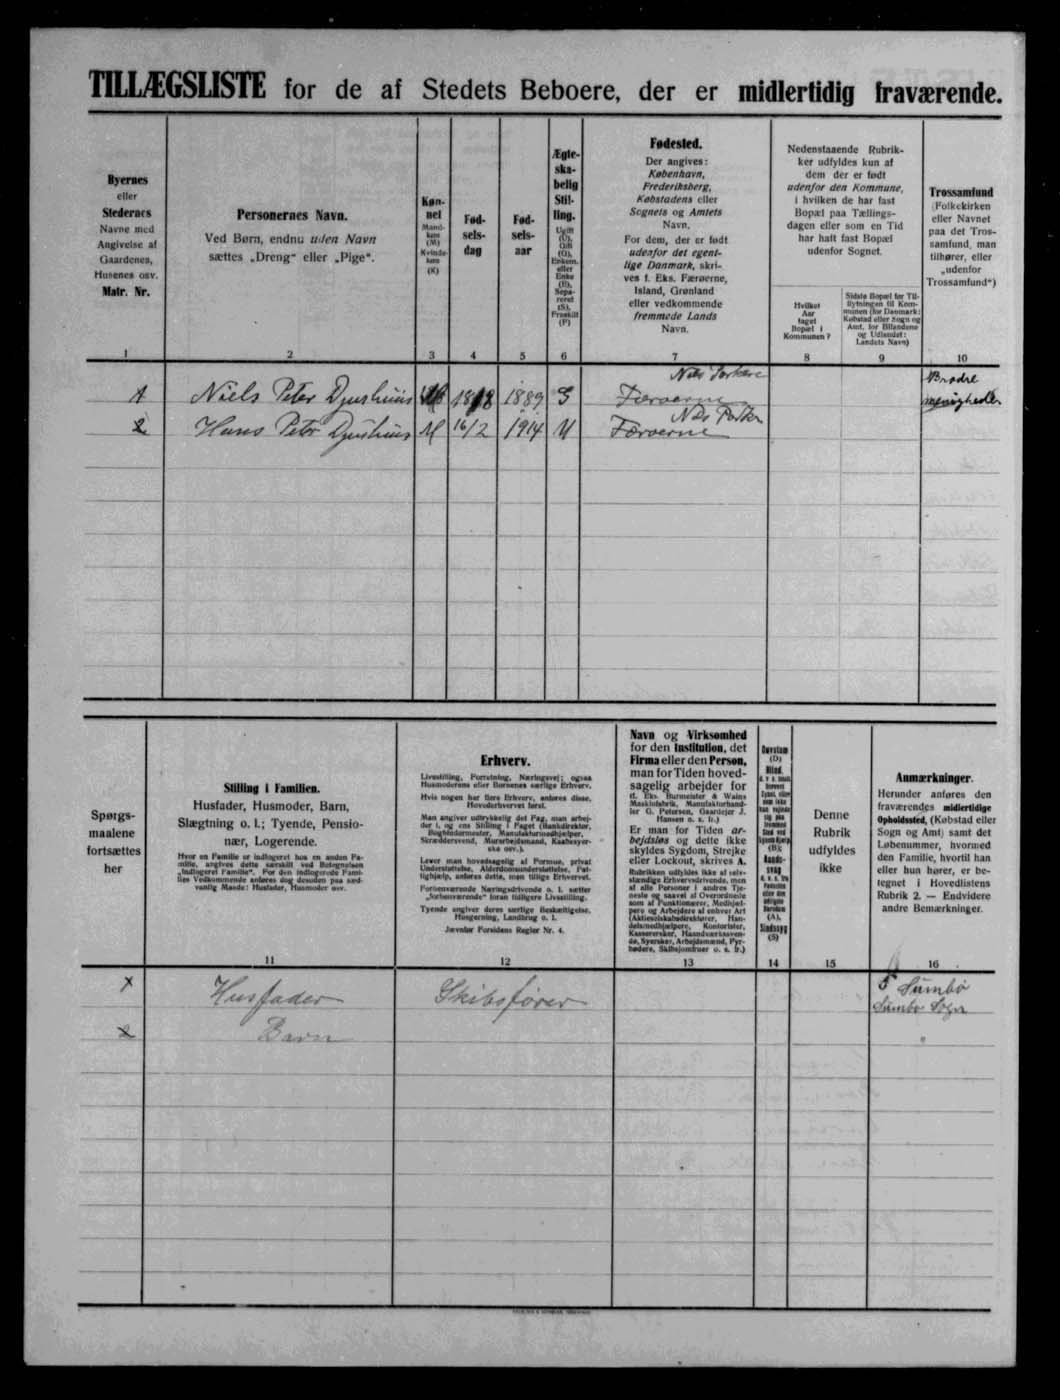 TILLÆGSLISTE for de af Stedets Beboere, der er midlertidig fraværende.
Byernes
eller
Stedernes
Navne med
Angivelse af
Gaardenes,
Husenes osv.
Matr. Nr.
1
Personernes Navn.
Ved Børn, endnu uden Navn
sættes „Dreng" eller „Pige".
2
Køn-
net
Mand-
køn
(M)
Kvinde-
køn
(K)
3
Fød-
sels-
dag
4
Fød-
sels-
aar
5
Ægte-
ska-
belig
Stil-
ling.
Ugift
(U),
Gift
(G),
Enkem.
eller
Enke
(E),
Sepa-
reret
(S),
Fraskilt
(F)
6
Fødested.
Der angives:
København,
Frederiksberg,
Købstadens eller
Sognets og Amtets
Navn.
For dem, der er født
udenfor det egent-
lige Danmark, skri-
ves f. Eks. Færøerne,
Island, Grønland
eller vedkommende
fremmede Lands
Navn.
7
Nedenstaaende Rubrik-
ker udfyldes kun af
dem der er født
udenfor den Kommune,
i hvilken de har fast
Bopæl paa Tællings-
dagen eller som en Tid
har haft fast Bopæl
udenfor Sognet.
Hvilket
Aar
taget
Bopæl i
Kommunen?
8
Sidste Bopæl før Til-
flytningen til Kom-
munen (for Danmark:
Købstad eller Sogn og
Amt, for Bilandene
og Udlandet:
Landets Navn)
9
Trossamfund
(Folkekirken
eller Navnet
paa det Tros-
samfund, man
tilhører, eller
„udenfor
Trossamfund")
10
1 Niels Peter Djurhuus 1889 G Færøerne Brødre
menigheden
2 Hans Peter Djurhuus M 16/2 1914 U Færøerne
Spørgs-
maalene
fortsættes
her
Stilling i Familien.
Husfader, Husmoder, Barn,
Slægtning o. l.; Tyende, Pensio-
nær, Logerende.
Hvor en Familie er indlogeret hos en anden Fa-
milie, angives dette særskilt ved Betegnelsen
„Indlogeret Familie". For den indlogerede Fami-
lies Vedkommende anføres dog desuden paa sæd-
vanlig Maade: Husfader, Husmoder osv.
11
Erhverv.
Livsstilling, Forretning, Næringsvej; ogsaa
Husmoderens eller Børnenes særlige Erhverv.
Hvis nogen har flere Erhverv, anføres disse,
Hovederhvervet først.
Man angiver udtrykkelig det Fag, man arbej-
der i, og ens Stilling i Faget (Bankdirektør,
Boghandermester, Manufakturmedhjælper,
Skræddersvend, Murarbejdsmand, Kasbesyer-
ske osv.).
Lever man hovedsagelig af Formue, privat
Understøttelse, Alderdomsunderstøttelse, Fat-
tighjælp, anføres dette, man tillige Erhvervet.
Forhenværende Næringsdrivende o. l. sætter
„forhenværende" foran tidligere Livsstilling.
Tyende angiver deres særlige Beskæftigelse,
Husgerning, Landbrug o. l.
Jævnfør Forsidens Regler Nr. 4.
12
Navn og Virksomhed
for den Institution, det
Firma eller den Person,
man for Tiden hoved-
sagelig arbejder for
(f. Eks. Burmeister & Wains
Maskinfabrik, Manufakturhand-
ler G. Petersen, Gaardejer J.
Hansen o. s. fr.)
Er man for Tiden ar-
bejdsløs og dette ikke
skyldes Sygdom, Strejke
eller Lockout, skrives A.
Rubrikken udfyldes ikke af selv-
stændige Erhvervsdrivende, men
af alle Personer i andres Tje-
neste og saavel af Overordnede
som af Funktionærer, Medhjæl-
pere og Arbejdere af enhver Art
(Aktieselskabsdirektører, Han-
delsmedhjælpere, Kontorister,
Kasserersker, Haandværkssven-
de, Syersker, Arbejdsmænd, Fyr-
bødere, Skibsjomfruer o. s. fr.)
13
Døvstum
(D)
Blind,
(B);
Aands-
svag
(A),
Sindssyg
(S)
14
Denne
Rubrik
udfyldes
ikke
15
Anmærkninger.
Herunder anføres den
fraværendes midlertidige
Opholdssted, (Købstad eller
Sogn og Amt) samt det
Løbenummer, hvormed
den Familie, hvortil han
eller hun hører, er be-
tegnet i Hovedlistens
Rubrik 2. — Endvidere
andre Bemærkninger.
16
1 Husfader Skibsfører 5 Sumbø
Sumbø Sogn
2 Barn "